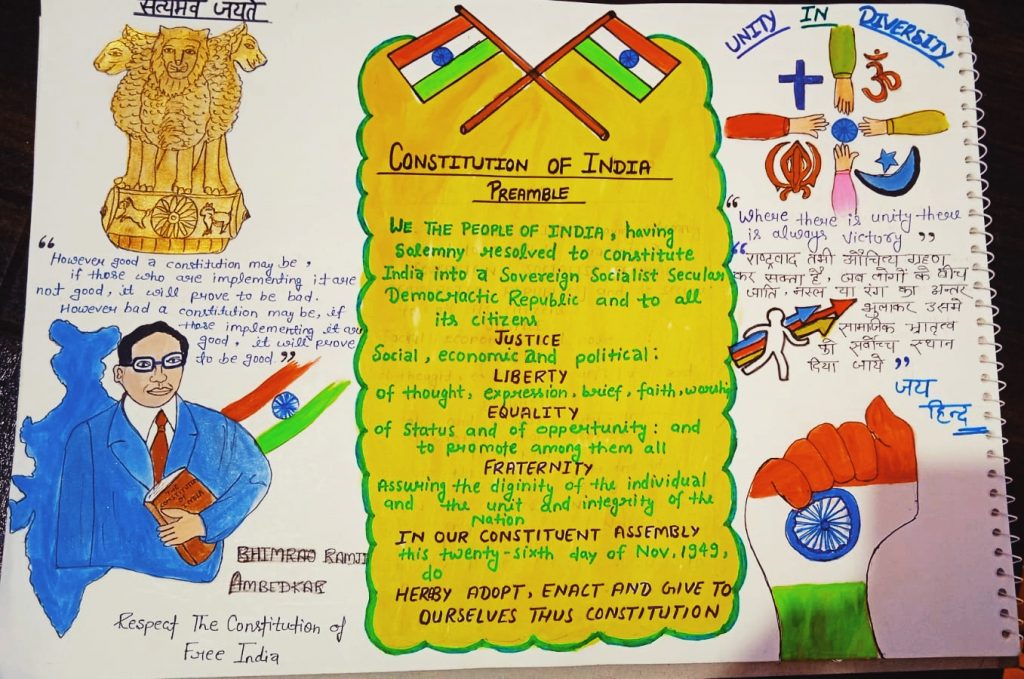 सत्यमेव जयते
“ However good a constitution may be,
if those who are implementing it are
not good, it will prove to be bad.
However bad a constitution may be, if
those implementing it are
good, it will prove
to be good. ”
THE
CONSTITUTION
OF
INDIA
BHIMRAO RAMJI
AMBEDKAR
Respect The Constitution of
Free India
CONSTITUTION OF INDIA
PREAMBLE
WE THE PEOPLE OF INDIA, having
Salemny resolved to constitute
India into a Sovereign Socialist Secular
Democractic Republic and to all
its citizens
JUSTICE
Social, economic and political:
LIBERTY
of thought, expression, brief, faith, worship
EQUALITY
of Status and of oppertunity: and
to promote among them all
FRATERNITY
Assuring the diginity of the individual
and the unit and integrity of the
Nation
IN OUR CONSTITUENT ASSEMBLY
this twenty-sixth day of Nov, 1949,
do
HERBY ADOPT, ENACT AND GIVE TO
OURSELVES THUS CONSTITUTION
UNITY IN DIVERSITY
ॐ
“ Where there is unity there
is always victory ”
“ राष्ट्रवाद तभी औचित्य ग्रहण
कर सकता है, जब लोगों के बीच
जाति, नस्ल या रंग का अन्तर
भुलाकर उसमें
सामाजिक भ्रातृत्व
को सर्वोच्च स्थान
दिया जाये ”
जय
हिन्द